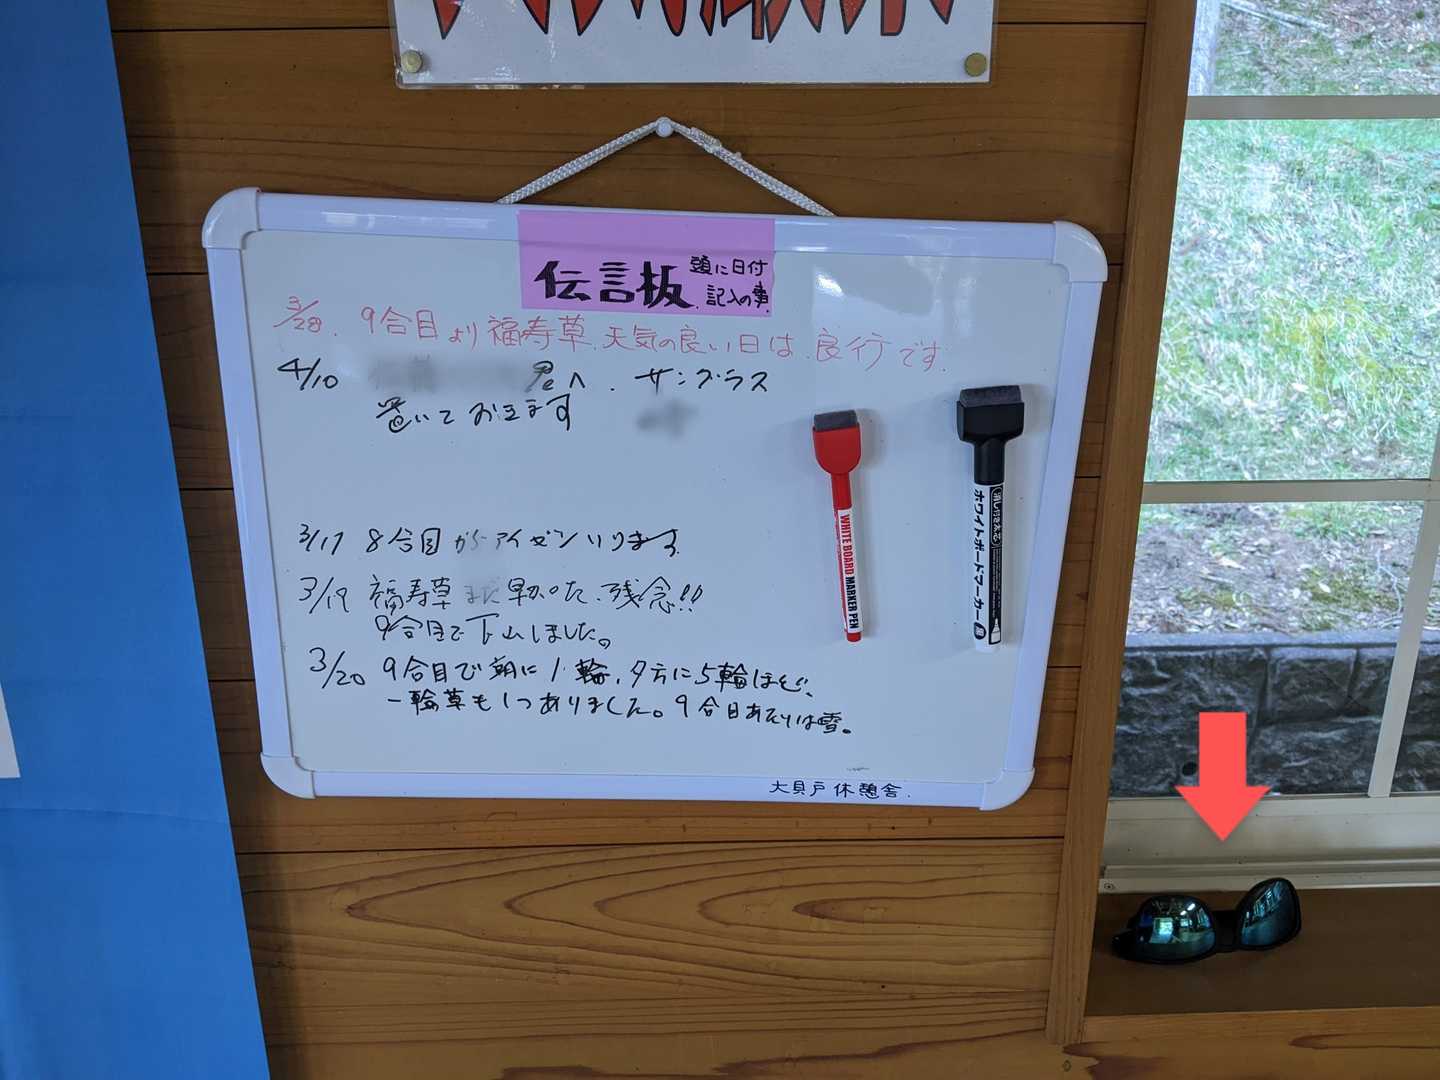 伝言板 頭に日付
記入の事
3/28. 9合目より福寿草.天気の良い日は.良行です.
4/10 君へ. サングラス
置いておきます
3/17 8合目からアイゼンいります.
3/19 福寿草まだ早かった.残念!!
9合目で下山しました。
3/20 9合目で朝に1輪、夕方に5輪ほど、
一輪草も1つありました。9合目あたりは雪。
大貝戸休憩舎.
WHITE BOARD MARKER PEN
消し付き太芯
ホワイトボードマーカー 黒